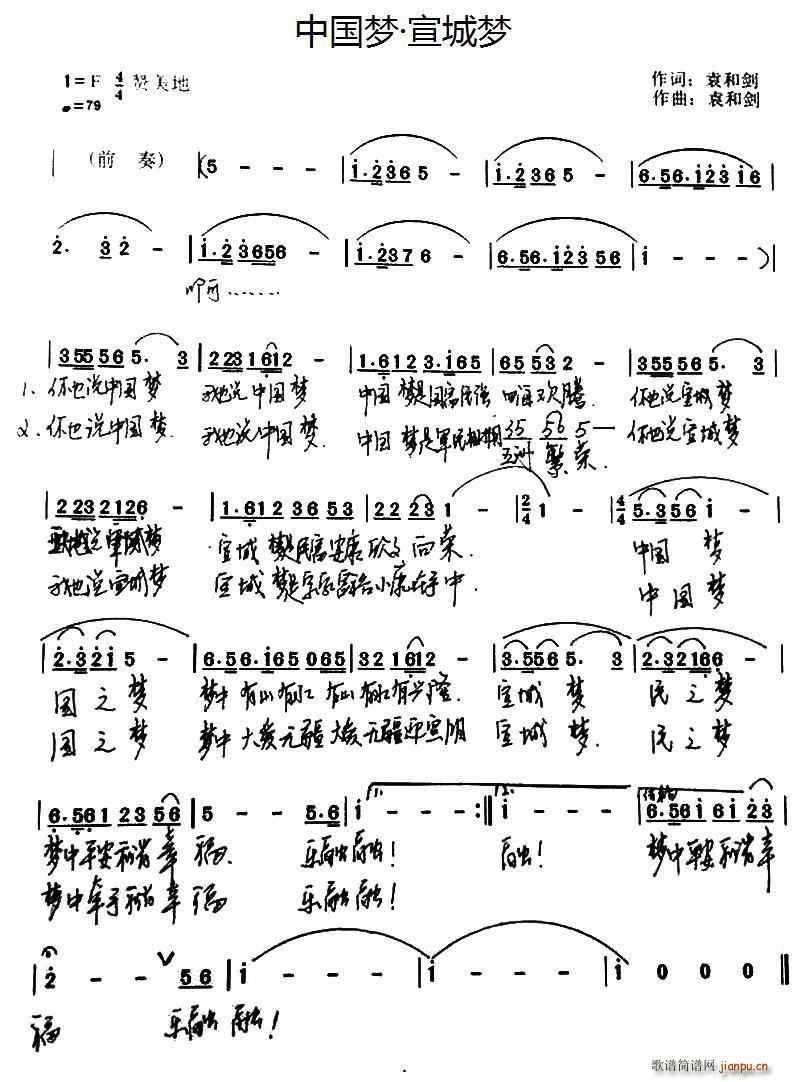 中国梦·宣城梦
1=F 4/4 赞美地
作词：袁和剑
♩=79
作曲：袁和剑
(前 奏) 5 - - - | i·2365 - | i·2365 - | 6·56·i23i6
2· 32 - | i·23656 - | i·2376 - | 6·56·i2356 | i - - - )
啊……
| 3555 65· 3 | 22231612 - | 1·612 3·i65 | 65 53 2 - | 3555 65· 3
1、你也说中国梦 我也说中国梦 中国 梦是国富民强 欢腾 你也说宣城梦
2、你也说中国梦 我也说中国梦 中国 梦是军民 35 56 5 — 你也说宣城梦
五洲 繁荣
| 2 23 2126 - | 1·612 36 53 | 22 23 1 - | 2/4 1 - | 4/4 5·356 i -
我也说宣城梦 宣城 梦是民富安康 向荣 中国 梦
我也说宣城梦 宣城 梦是 小康 中 中国 梦
| 2·32i 5 - | 6·56·i65 065 | 32 1612 - | 3·556 5· 3 | 2·32166 -
国之梦 梦中有山有水有山有水有兴隆 宣城 梦 民之梦
国之梦 梦中大爱无疆大爱无疆 宣城 梦 民之梦
| 6·561 23 56 | 5 - - 5·6 | i - - - :‖ i - - - | 6·56i 6i 23
1. 2.
梦中平安和谐幸 福 乐融融！ 融！ 梦中平安和谐幸
梦中牵手和谐幸 福 乐融融！
| 2 - - 56 | i - - - | i - - - | i 0 0 0 ‖
福 乐融融！
歌谱简谱网 jianpu.cn